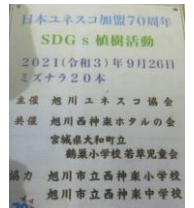 日本ユネスコ加盟70周年
SDGs植樹活動
2021(令和3)年9月26日
ミズナラ20本
主催 旭川ユネスコ協会
共催 旭川西神楽ホタルの会
宮城県大和町立
鶴巣小学校若草児童会
協力 旭川市立西神楽小学校
旭川市立西神楽中学校